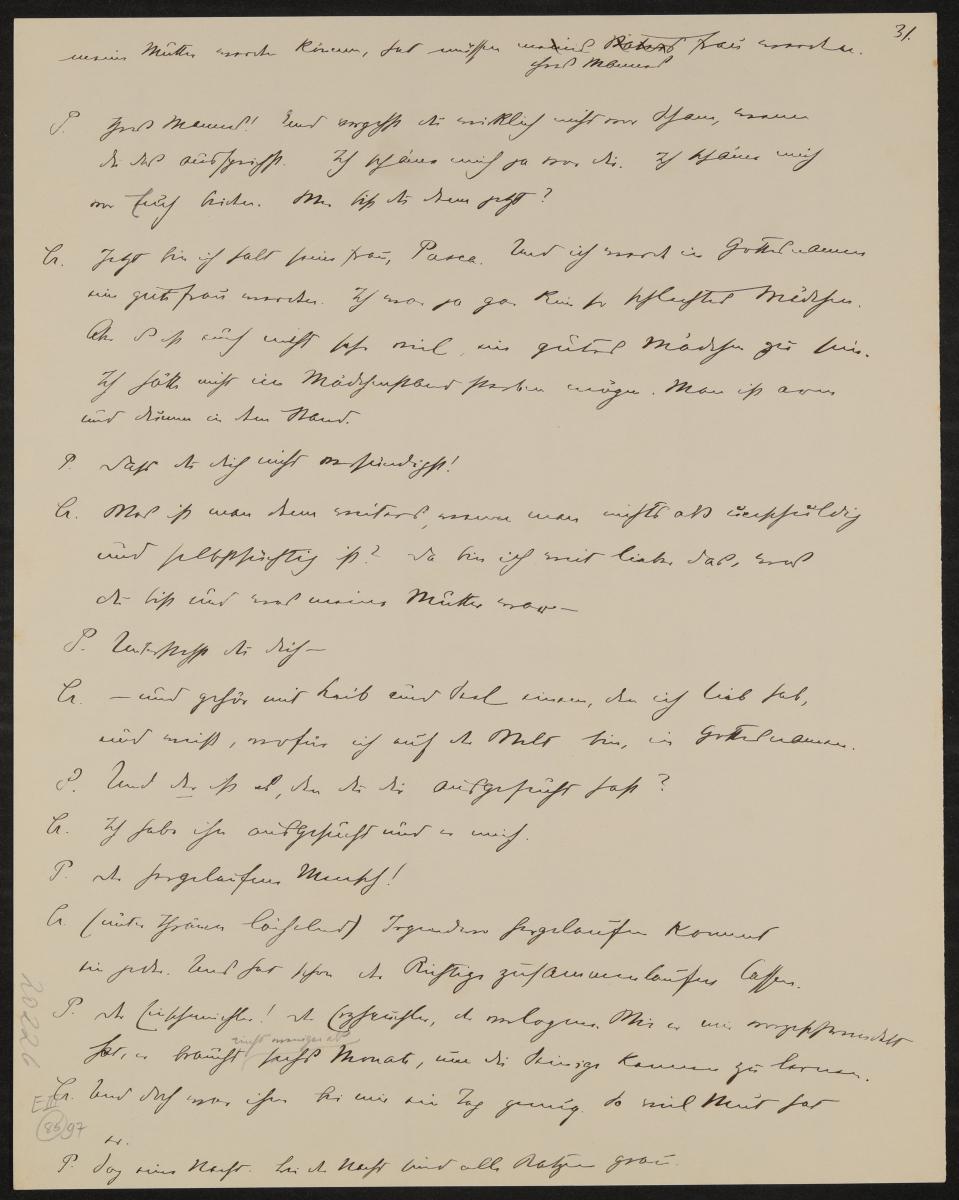 31.
meine Mutter werden können, hat müssen meines Vaters Frau werden.
ihres Mannes
P. Ihres Mannes! Und vergehst du wirklich nicht vor Scham, wenn
du das aussprichst. Ich schäme mich ja vor dir. Ich schäme mich
vor Euch beiden. Wer bist du denn jetzt?
Cr. Jetzt bin ich halt seine Frau, Pasca. Und ich werd in Gottesnamen
eine gute Frau werden. Ich war ja gar kein so schlechtes Mädchen.
Aber es ist auch nicht sehr viel, ein gutes Mädchen zu sein.
Ich hätte nicht im Mädchenstand sterben mögen. Man ist arm
und dumm in dem Stand.
P. Dass du dich nicht versündigst!
Cr. Was ist man denn weiters, wenn man nichts als unschuldig
und selbstsüchtig ist? Da bin ich weit lieber das, was
du bist und was meine Mutter war —
P. Unterstehst du dich —
Cr. — und gehör mit Leib und Seel einem, den ich lieb hab,
und weiss, wofür ich auf der Welt bin, in Gottesnamen.
P. Und der ist es, den du dir ausgesucht hast?
Cr. Ich habe ihn ausgesucht und er mich.
P. Der hergelaufene Mensch!
Cr. (unter Thränen lächelnd) Irgendwo hergelaufen kommt
ein jeder. Und hat schon der Richtige zusammenlaufen lassen.
P. Der ! Der Erzheuchler, der verlogene. Wie er mir vorgeschwindelt
nicht weniger als
hat, er braucht sechs Monate, um die Seinige kennen zu lernen.
Cr. Und doch war ihm bei mir ein Tag genug. So viel Mut hat
er.
P. Sag eine Nacht. Bei der Nacht sind alle Katzen grau.
20226
E III
85 97